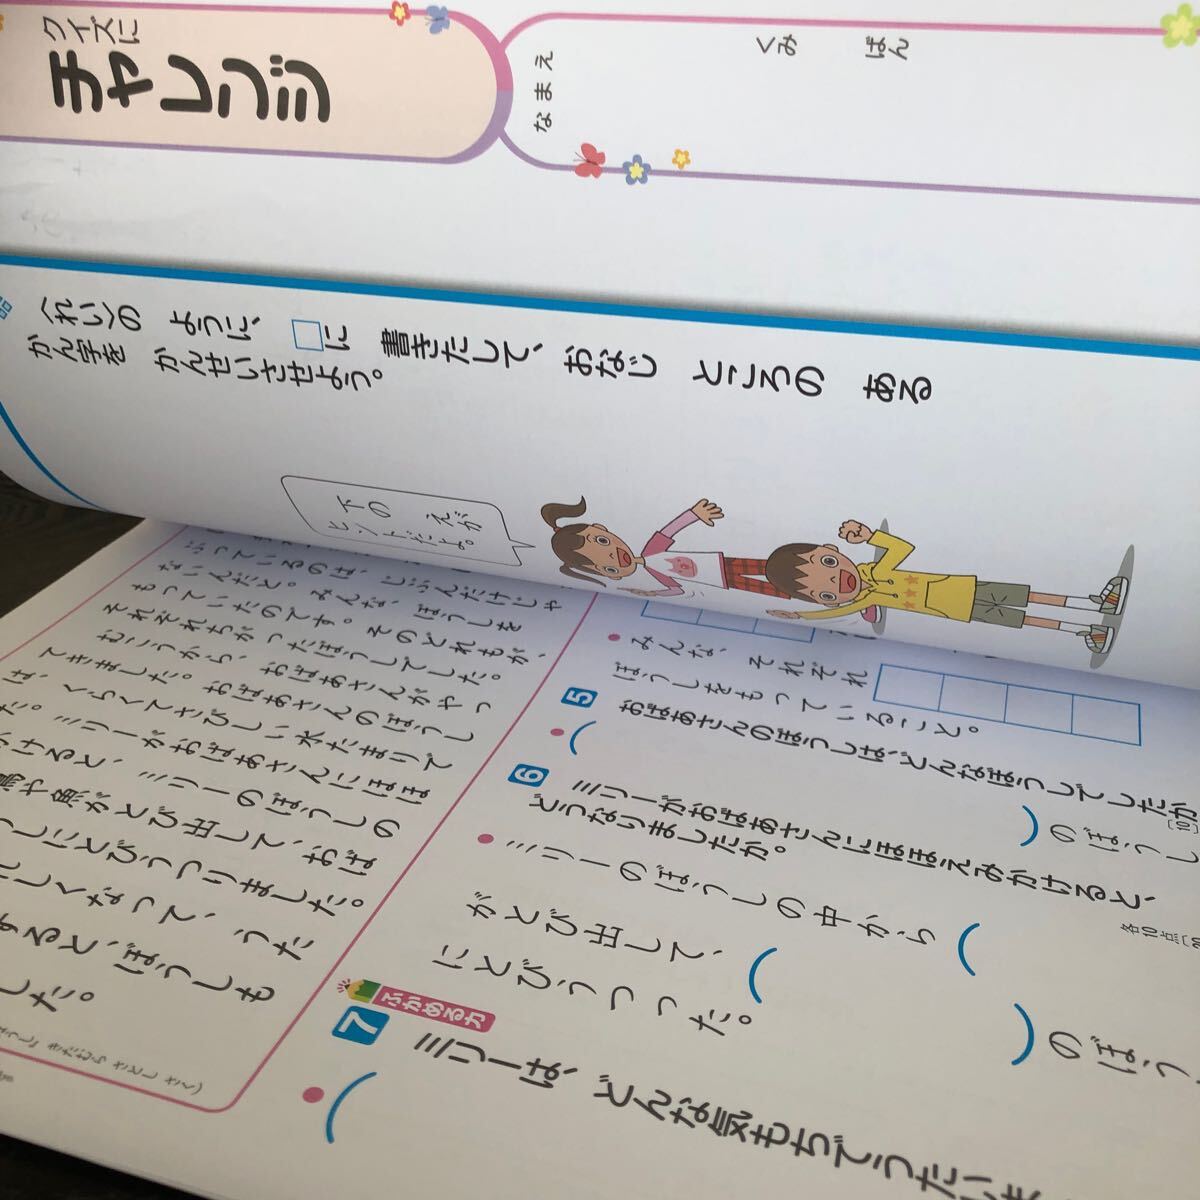 クイズに
チャレンジ
なまえ
くみ
ばん
〈れい〉の ように、□に 書きたして、おなじ ところの ある
かん字を かんせいさせよう。
下の えが
ヒントだよ。
みんな、それぞれ
ぼうしをもっていること。
5
おばあさんのぼうしは、どんなぼうしでしたか
(
)のぼうし
6
ミリーがおばあさんにほほえみかけると、
どうなりましたか。
各10点
ミリーのぼうしの中から(
)
がとび出して、(
)のぼうし
にとびうつった。
ふかめる力
7
ミリーは、どんな気もちでうたいま
(
ぶっているのは、じぶんだけじゃ
ないんだと。みんな、ぼうしを
もっていたのです。そのどれもが、
それぞれちがったぼうしでした。
むこうから、おばあさんがやっ
てきました。おばあさんのぼうし
は、くらくてさびしい水たまりで
ミリーがおばあさんにほほ
かけると、ミリーのぼうしの
鳥や魚がとび出して、おば
しにとびうつりました。
しくなって、うた
ると、ぼうしも
した。